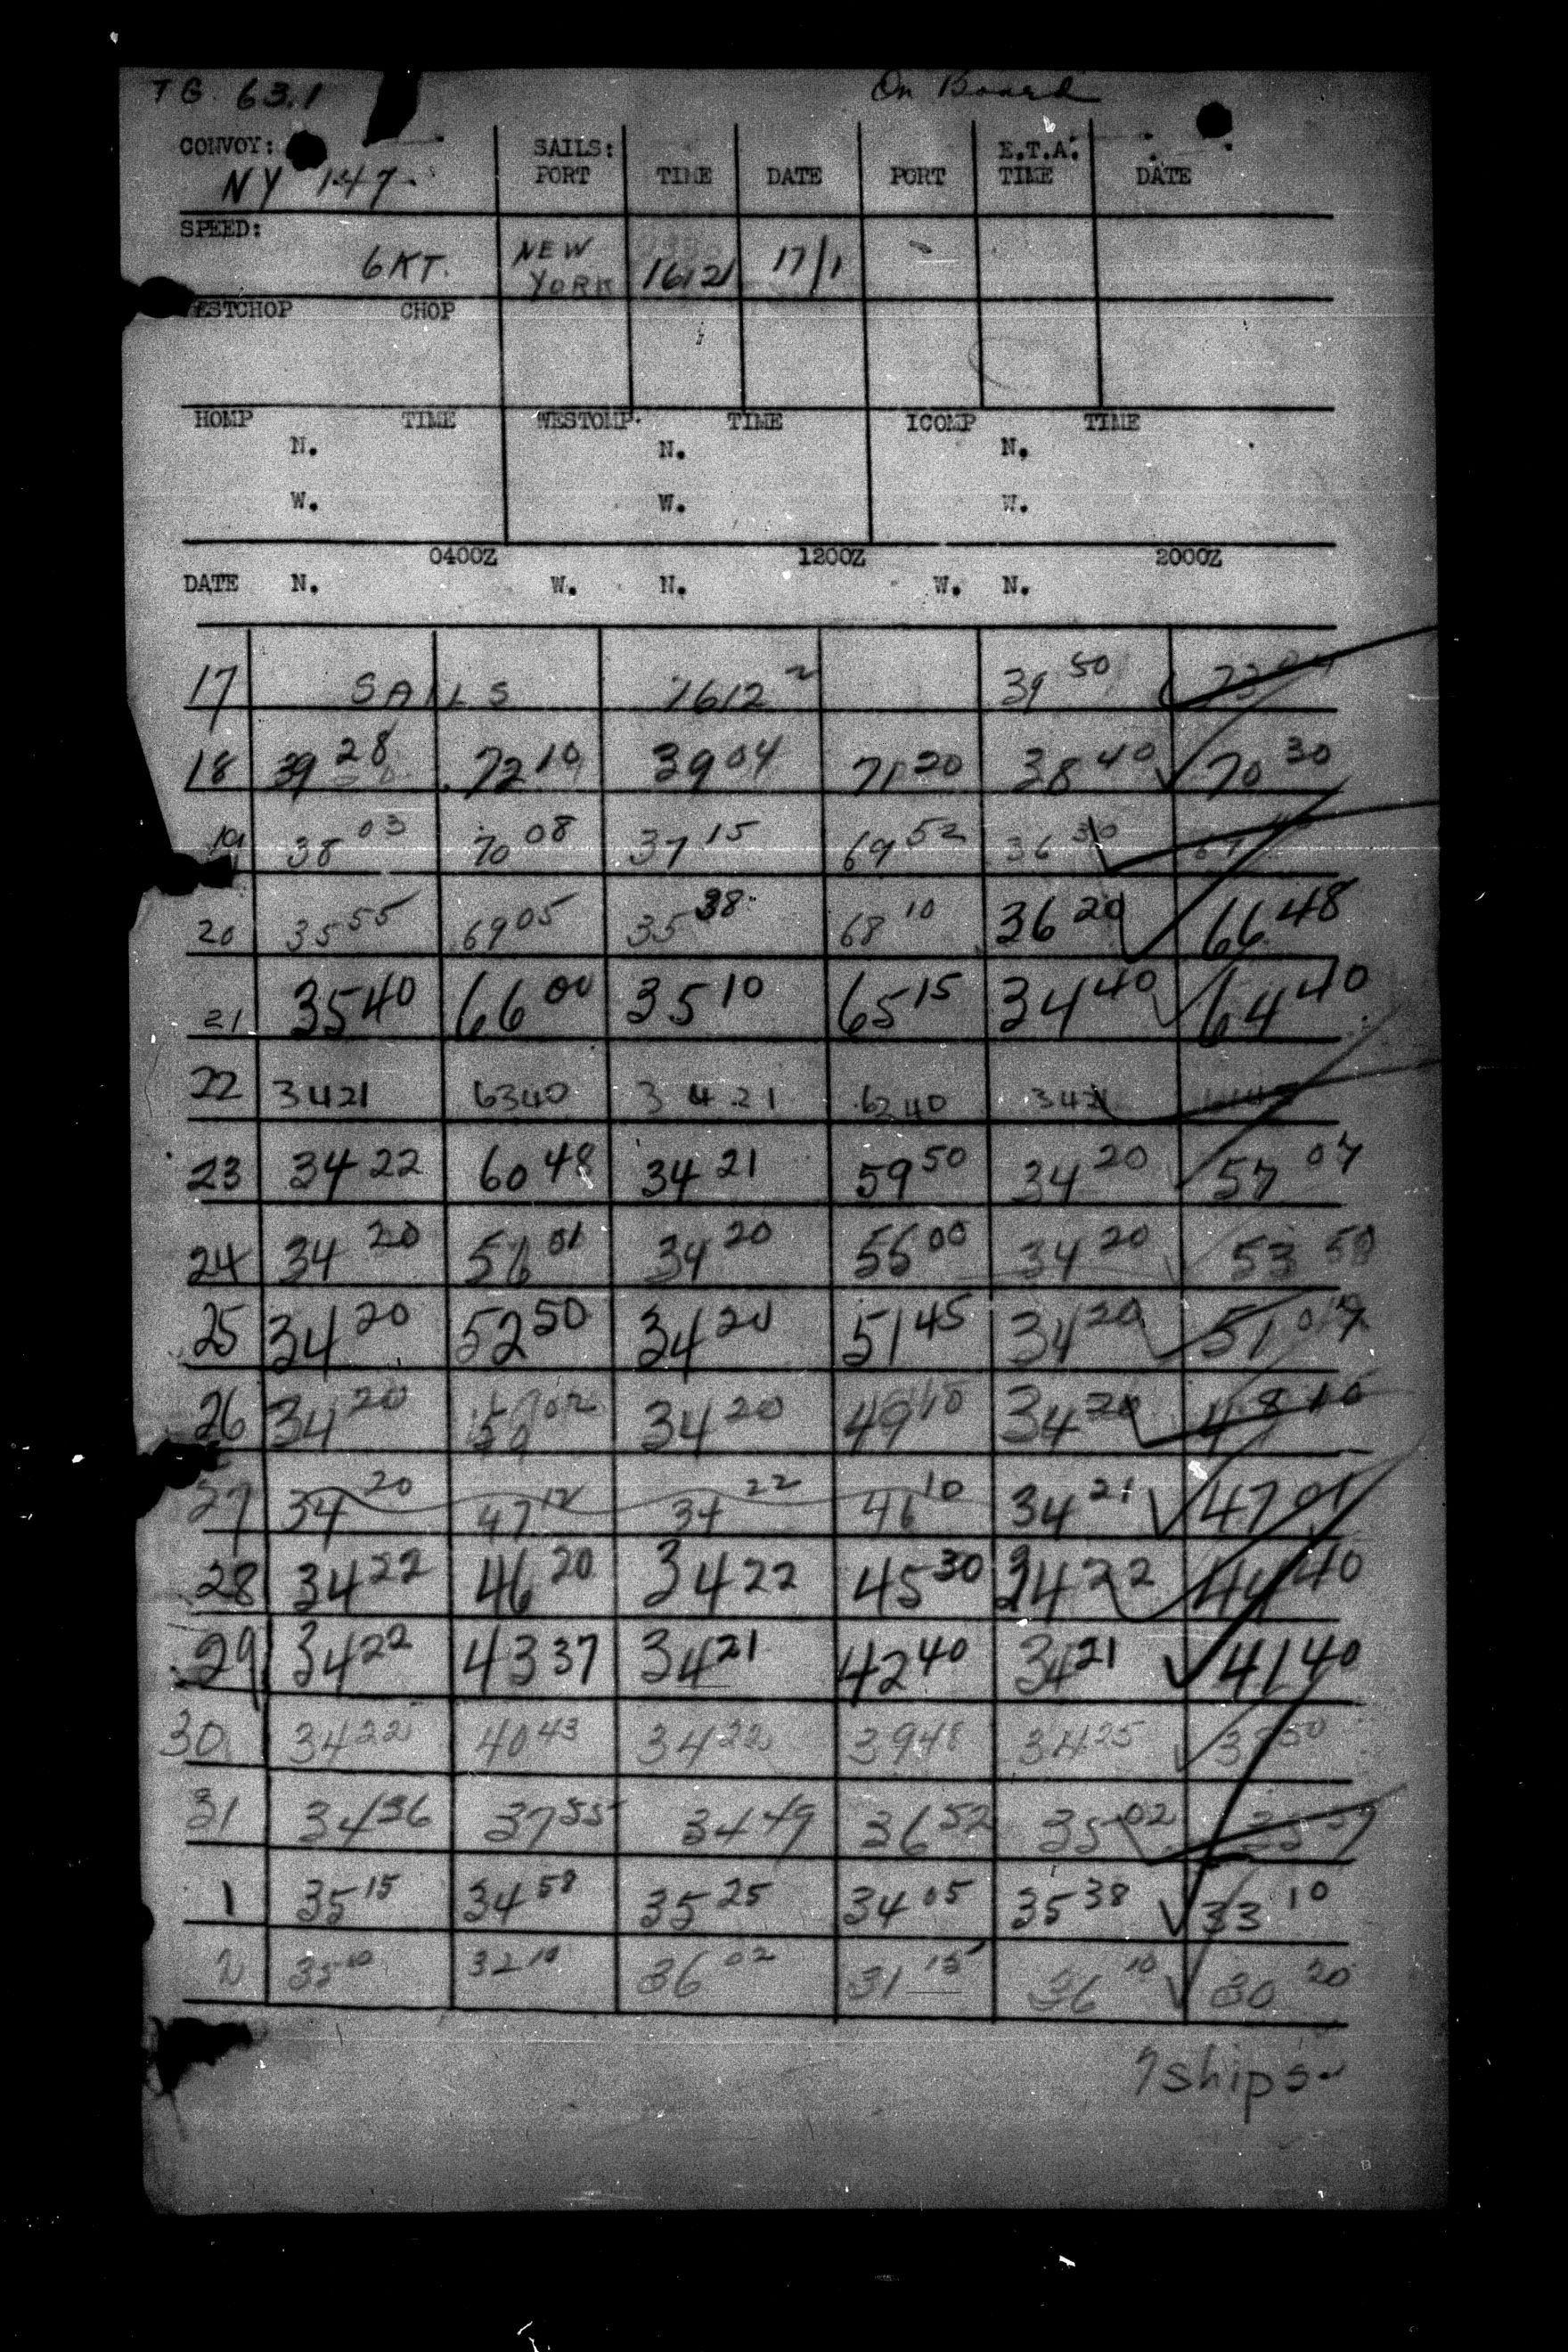 TG. 63.1 On Board
CONVOY: SAILS: E.T.A.
PORT TIME DATE PORT TIME DATE
NY 147
SPEED:
6 KT. NEW YORK 1612 17/1
ESTCHOP CHOP
HOMP TIME WESTOMP TIME ICOMP TIME
N. N. N.
W. W. W.
0400Z 1200Z 2000Z
DATE N. W. N. W. N.
17 SAILS 1612 Z 39 50 73
18 39 28 72 10 39 04 71 20 38 40 70 30
19 38 03 70 08 37 15 69 52 36 30
20 35 55 69 05 35 38 68 10 36 20 66 48
21 35 40 66 00 35 10 65 15 34 40 64 40
22 34 21 63 40 34 21 62 40 34 21
23 34 22 60 48 34 21 59 50 34 20 57 07
24 34 20 56 01 34 20 55 00 34 20 53 50
25 34 20 52 50 34 20 51 45 34 20 51
26 34 20 50 02 34 20 49 10 34 20 48 10
27 34 20 47 12 34 22 46 10 34 21 47 01
28 34 22 46 20 34 22 45 30 34 22 44 40
29 34 22 43 37 34 21 42 40 34 21 41 40
30 34 22 40 43 34 22 39 48 34 25 50
31 34 36 37 55 34 49 36 52 35 02 35 57
1 35 15 34 58 35 25 34 05 35 38 33 10
2 35 32 10 36 02 31 15 36 10 30 20
7 ships